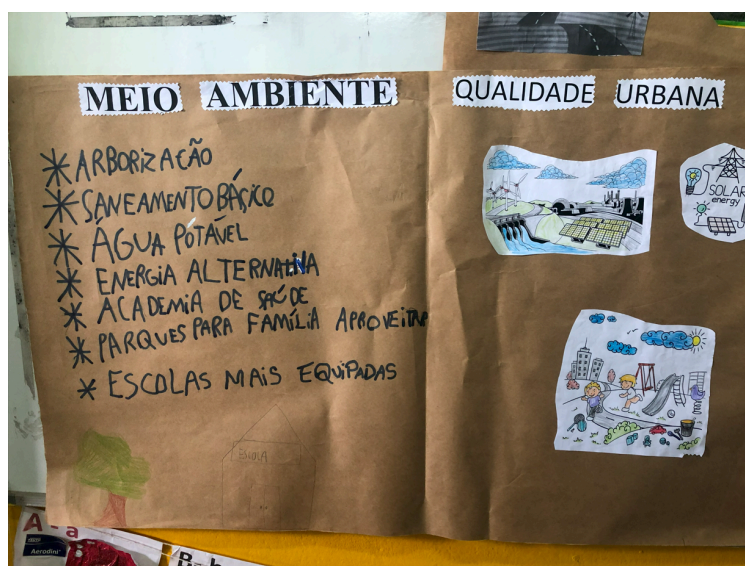 MEIO AMBIENTE
QUALIDADE URBANA
* ARBORIZAÇÃO
* SANEAMENTO BÁSICO
* ÁGUA POTÁVEL
* ENERGIA ALTERNATIVA
* ACADEMIA DE SAÚDE
* PARQUES PARA FAMÍLIA APROVEITAR
* ESCOLAS MAIS EQUIPADAS
ESCOLA
SOLAR
energy
Aerodini